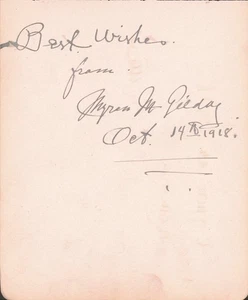 Best Wishes.
from.
Myron M. Gilday
Oct. 14th 1918.